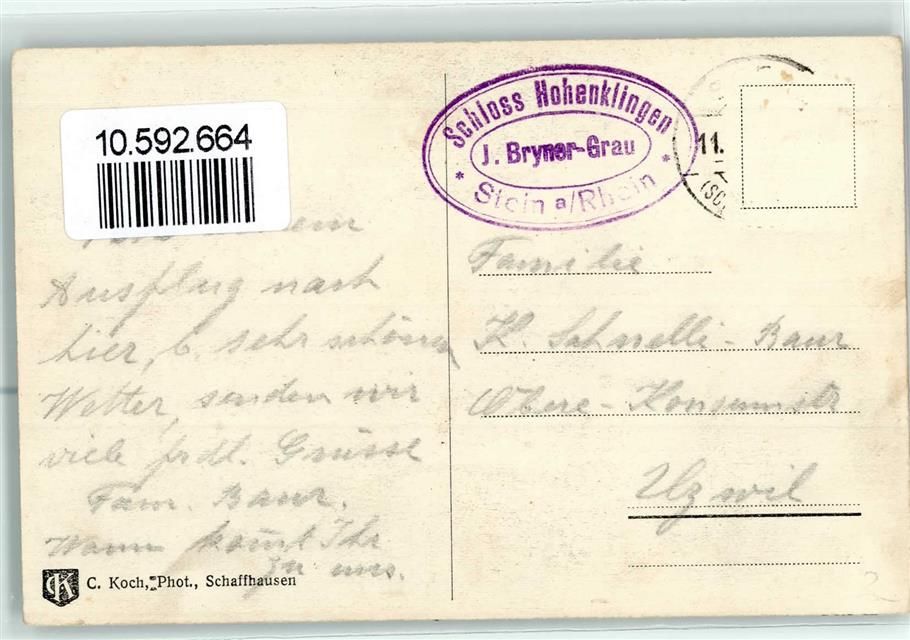 10.592.664
Ausflug nach
hier, b. sehr schönen
Wetter, senden wir
viele frdl. Grüsse
Fam. Baur.
Wann komt Ihr
zu uns.
C. Koch, Phot., Schaffhausen
Schloss Hohenklingen
J. Bryner-Grau
* Stein a/Rhein *
11.
(SC
Familie
K. Schnelli-Baur
Obere-Konsumstr
Uzwil